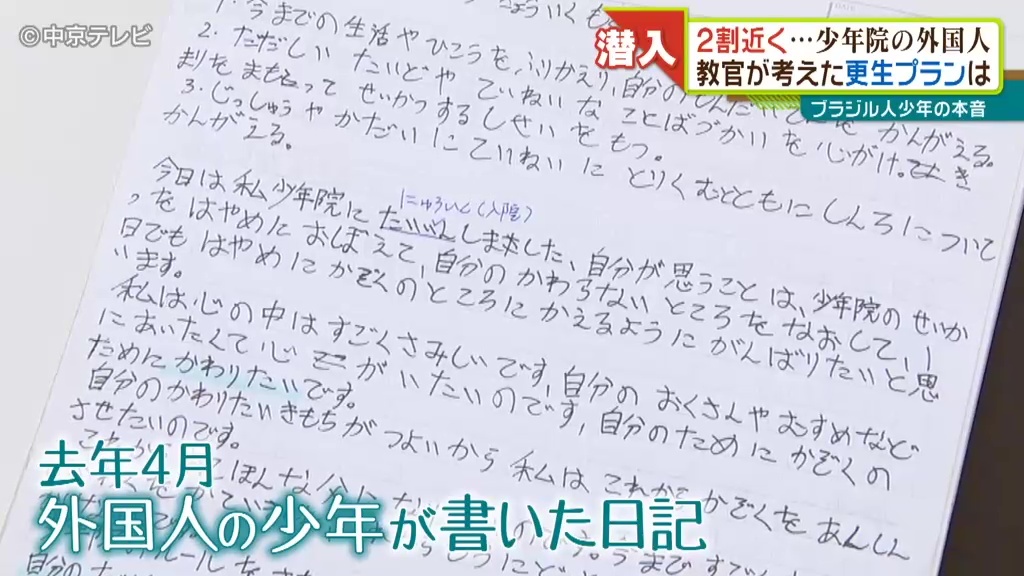 ©中京テレビ
潜入
2割近く…少年院の外国人
教官が考えた更生プランは
ブラジル人少年の本音
1.今までの生活やひこうを、ふりかえり、自分の かんがえる。
2.ただしい たいどや ていねいな ことばづかい を 心がけ。
まりを まもって せいかつする しせい をもつ。
3.じっしゅうや かだいに ていねいに とりくむとともに しんろ について
かんがえる。
にゅういん(入院)
今日は 私 少年院に たいいんしました、自分が 思うことは、少年院の せいか
つを はやめに おぼえて、自分の かわらない ところを なおして、1
日でも はやめに かぞくの ところに かえるように がんばりたいと 思
います。
私は 心の中は すごく さみしいです、自分の おくさんや むすめなど
にあいたくて 心 が いたいのです、自分のために かぞくの
ために かわりたいです。
自分の かわりたい きもちが つよいから 私は これから かぞくを あんしん
させたいのです。
去年4月
外国人の少年が書いた日記